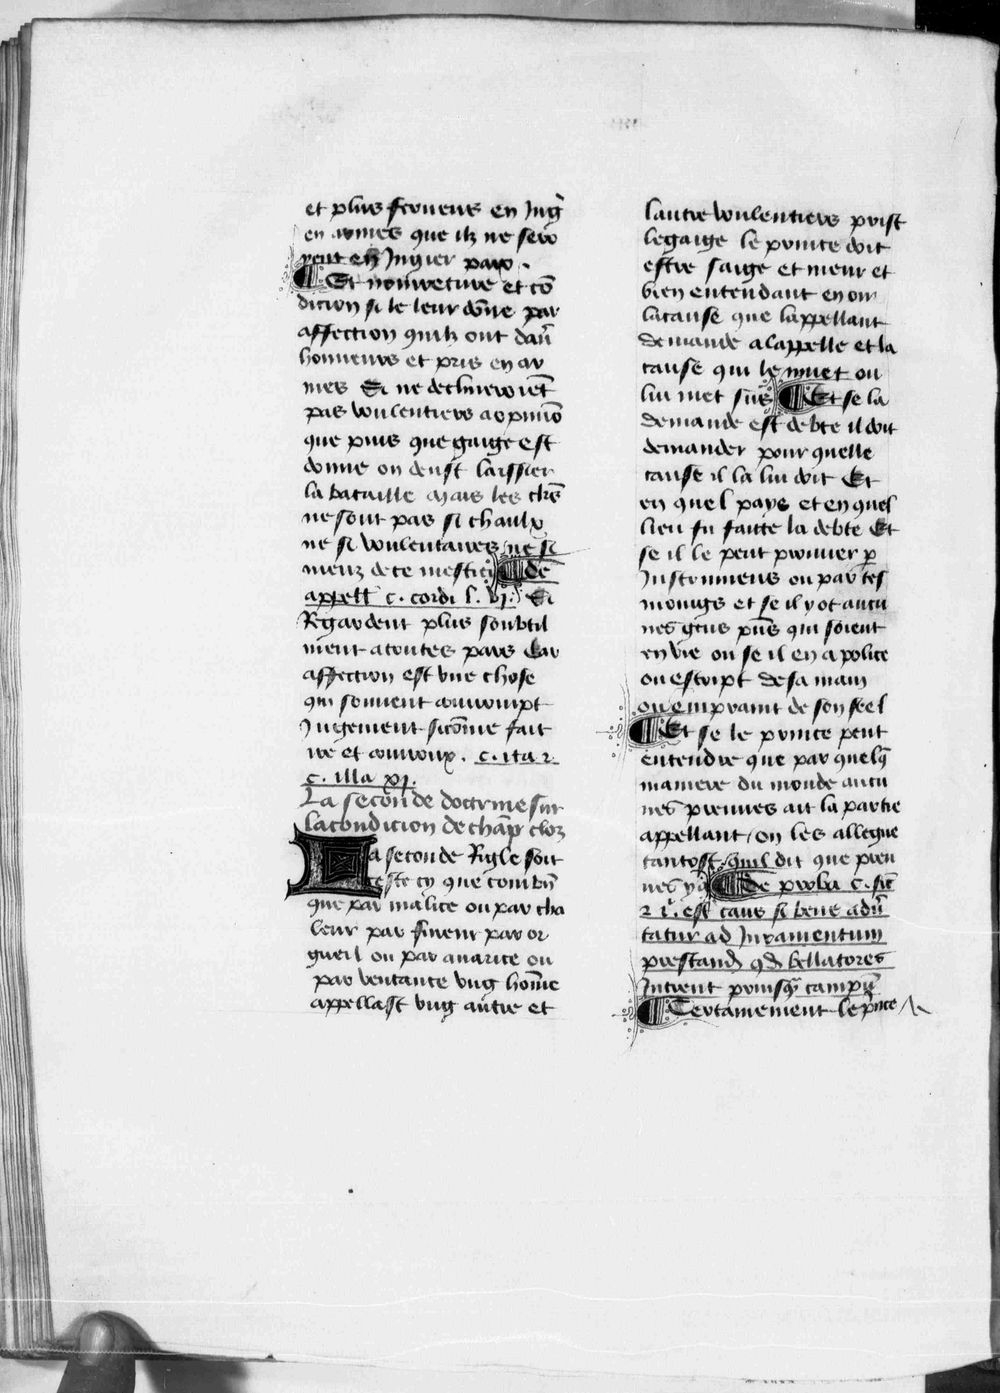 et plus ferueus en Jug̃
en armes que ilz ne sero
yent en Jugier par
¶ Et nourreture et cõ
dicion si le leur dõne par
affection quilz ont dau̾
honneurs et pris en ar
mes Si ne declineroiẽt
pas voulentiers a opiniõ
que puis que gaige est
donne on deust laissier
la bataille Mais les clrẽs
ne sont pas si chaulx
ne si voulentaires ne si
meuz de ce mestier ¶ de
appell̃ c. cordi l. vj. Si
Regardent plus soubtil
ment a toutes pars Car
affection est vne chose
qui souuent corrompt
Jugement sicõme fait
ire et courroux. c. ita 2.
c. illa xj.
La seconde doctrine sur
la condicion de chãp cloz
La seconde Rigle soit
ceste cy que combiẽ
que par malice ou par cha
leur par fureur par or
gueil ou par auarice ou
par ventance vng hõme
appellast vng autre et
lautre voulentiers prist
le gaige le prince doit
estre saige et meur et
bien entendant en oir
la cause que lappellant
demande a lappelle et la
cause qui le muet ou
lui met sus ¶ Et se la
demande est debte il doit
demander pour quelle
cause il la lui doit Et
en quel pays et en quel
lieu fu faitte la debte Et
se il le peut prouuer p̱
Jnstrumens ou par tes
moings et se il y ot aucu
nes gens p̃ns qui soient
en vie ou se il en a police
ou escript de sa main
ou empraint de son seel
¶ Et se le prince peut
entendre que par quelq̃
maniere du monde aucu
nes preuues ait la partie
appellant / ou les allegue
tantost quil dit que preu
ues y a ¶ de proba c. sic̃
2 l. est caus̃ si bene adũ
tatur ad Juramentum
prestand̃ qd̃ bellatores
Jntrent priusq̃ campũ
¶ Certainement le prĩce